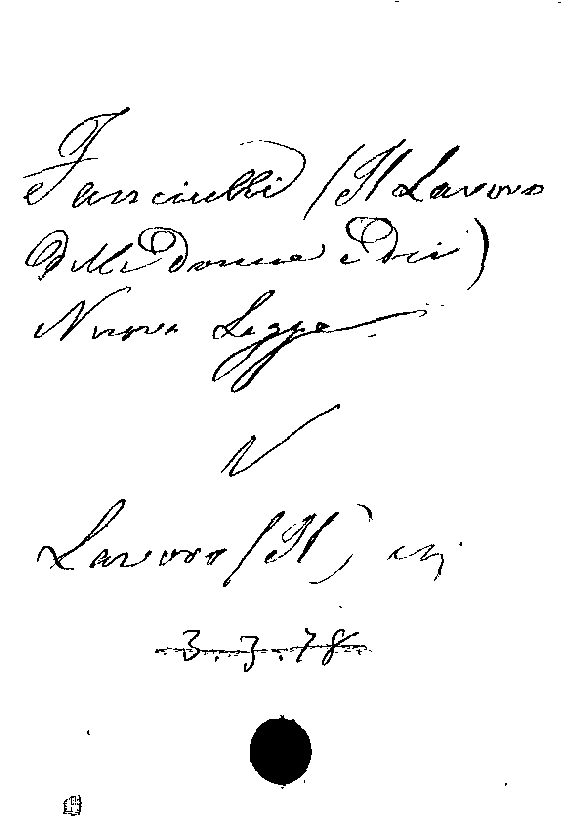 Fanciulli (Il Lavoro
delle donne e dei)
Nuova Legge.
V
Lavoro (Il) ecc.
3.3.78